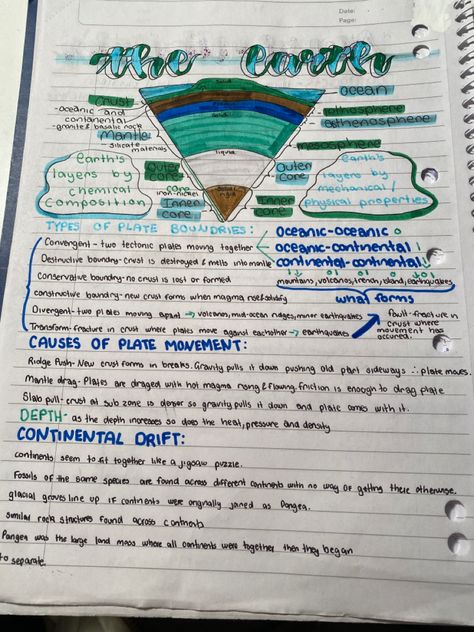 Date:
Page:
the earth
Crust
-oceanic and continental
-granite & basalic rock
Mantle
-silicate materials
Outer core
iron-nickel
Inner core
ocean
lithosphere
asthenosphere
mesosphere
Outer core
Inner core
Solid
Solid
liquid
Solid
Earth's layers by chemical composition
earth's layers by mechanical / physical properties
TYPES OF PLATE BOUNDRIES:
oceanic-oceanic
Convergent - two tectonic plates moving together
oceanic-continental
Destructive boundry- crust is destroyed & melts into mantle
continental-continental
Conservative boundry- no crust is lost or formed
mountains, volcanos, trench, island, earthquakes
constructive boundry- new crust forms when magma rise & solidify
what forms
Divergent- two plates moving apart → volcanos, mid-ocean ridges, minor earthquakes
fault-fracture in crust where movement has occured.
Transform- fracture in crust where plates move against eachother → earthquakes
CAUSES OF PLATE MOVEMENT:
Ridge Push- New crust forms in breaks. Gravity pulls it down pushing old part sideways ∴ plate moves.
Mantle drag- Plates are draged with hot magma rising & flowing. friction is enough to drag plate
Slab pull- crust at sub zone is denser so gravity pulls it down and plate comes with it.
DEPTH- as the depth increases so does the heat, pressure and density
CONTINENTAL DRIFT:
continents seem to fit together like a jigsaw puzzle.
Fossils of the same species are found across different continents with no way of getting there otherwise.
glacial groves line up if continents were originally joined as Pangea.
similar rock structures found across continents
Pangea was the large land mass where all continents were together then they began
to separate.